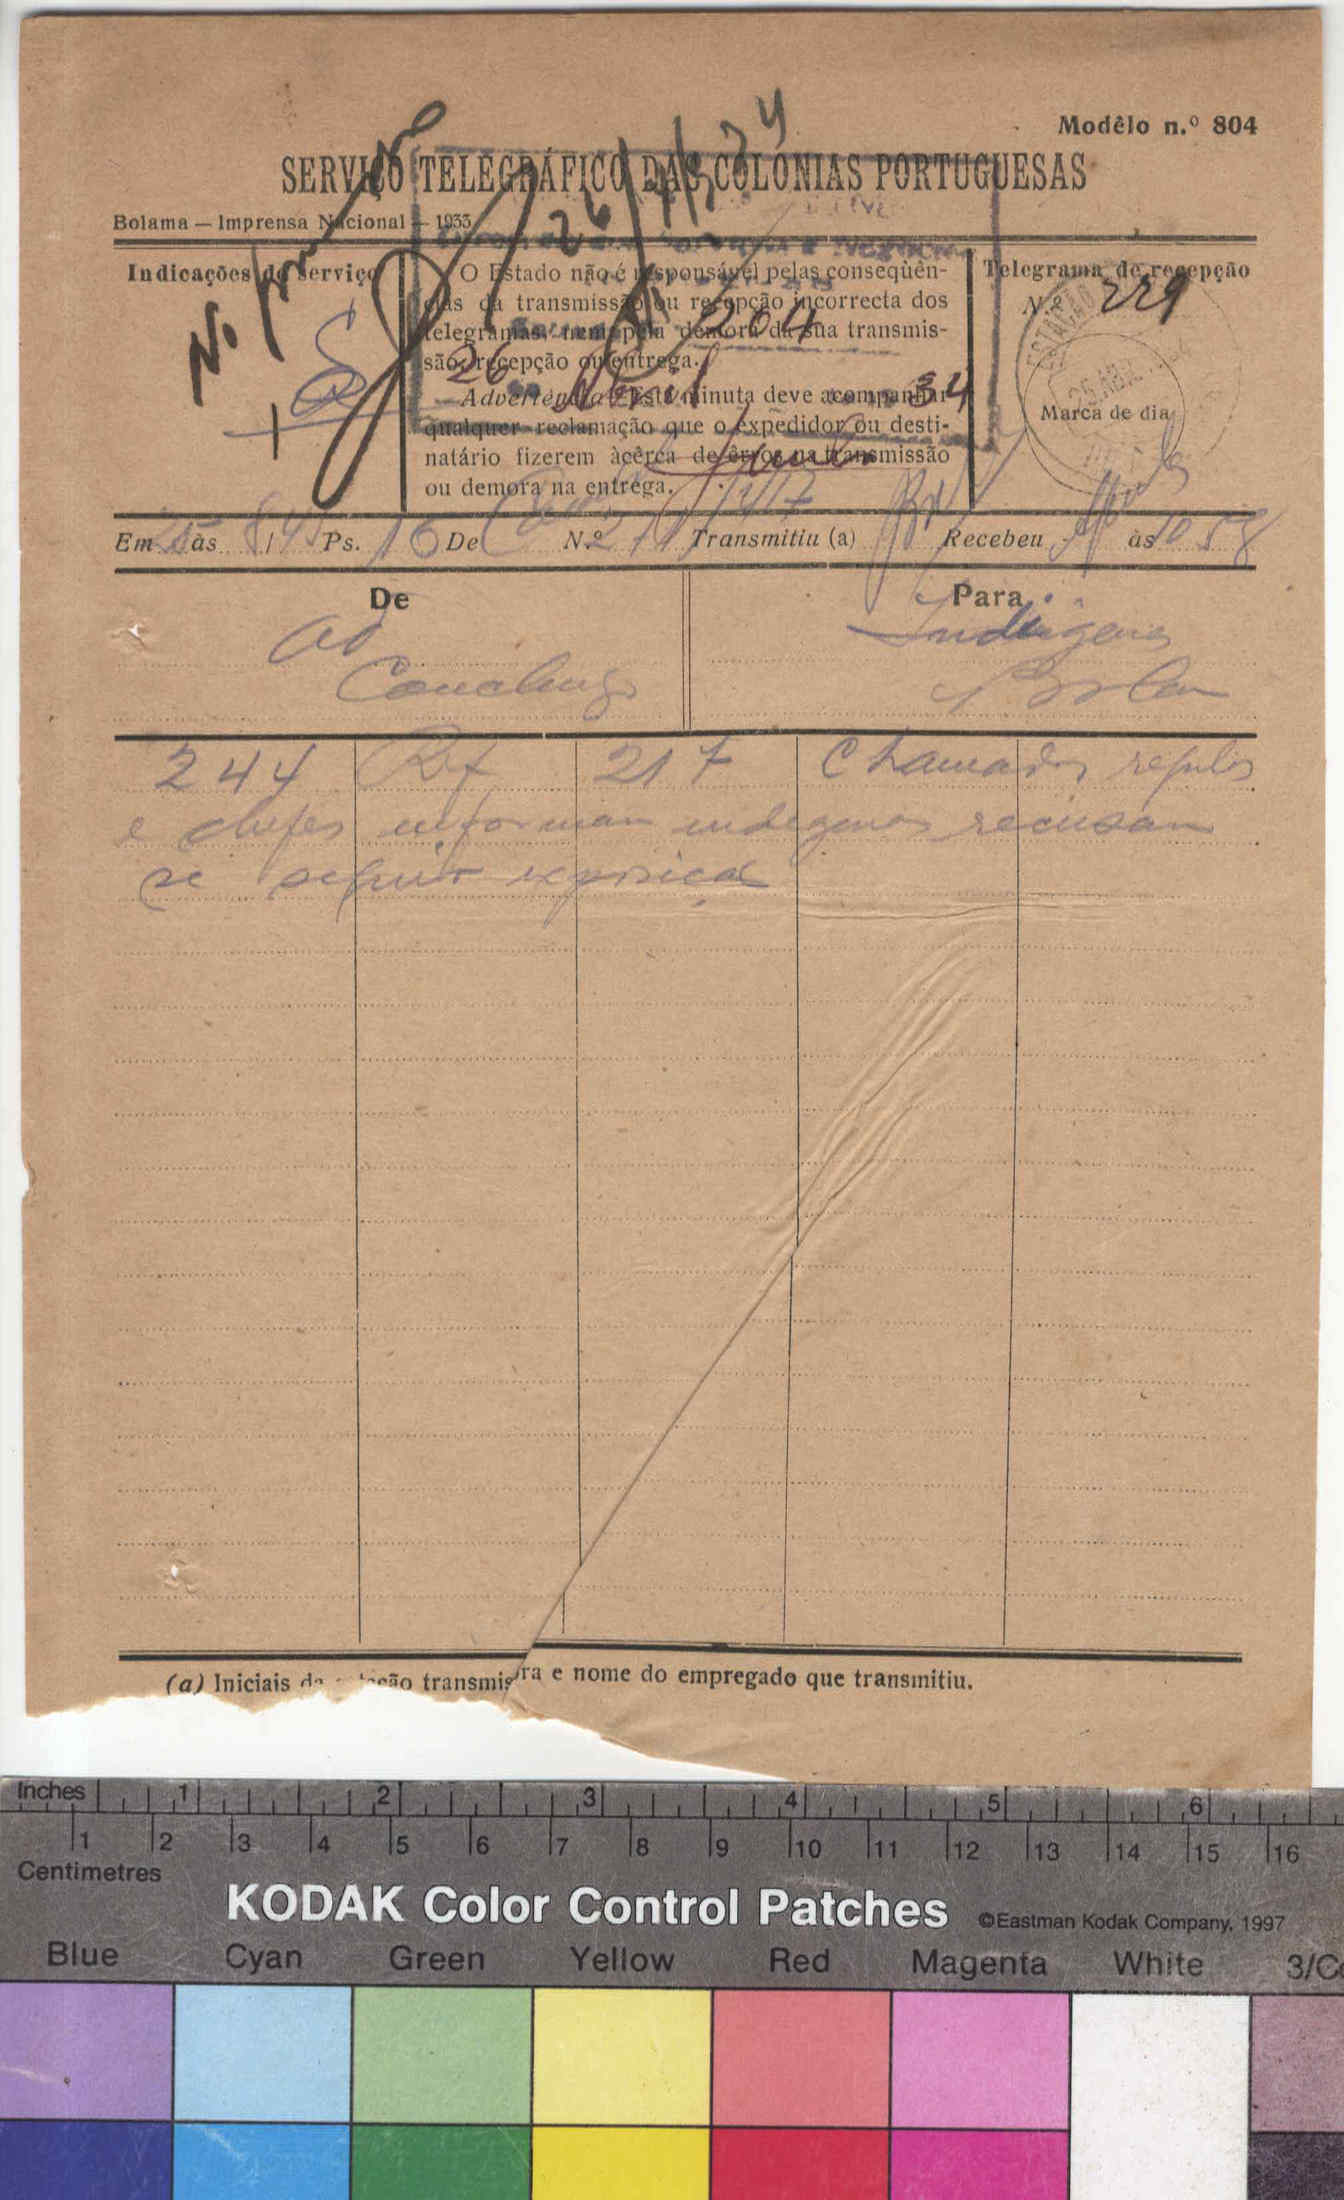 Modêlo n.º 804
SERVIÇO TELEGRÁFICO DAS COLÓNIAS PORTUGUESAS
Bolama — Imprensa Nacional — 1933
26/4/34
Indicações de serviço
O Estado não é responsável pelas conseqüên-
cias da transmissão ou recepção incorrecta dos
telegramas, nem pela demora da sua transmis-
são, recepção ou entrega.
Advertência — Esta minuta deve acompanhar
qualquer reclamação que o expedidor ou desti-
natário fizerem àcêrca de êrros na transmissão
ou demora na entrega.
204
26 Abril 34
Telegrama de recepção
N.º 229
ESTAÇÃO
Marca de dia
Em 25 às 8/45 Ps. 16 De N.º Transmitiu (a) Recebeu às 10 58
De
Para
Ad
Indigenas
Canchungo
Bolama
244 Ref 217 Chamados regulos
e chefes informam indigenas recusam
se seguir exposição
(a) Iniciais da estação transmissora e nome do empregado que transmitiu.
Inches 1 2 3 4 5 6
1 2 3 4 5 6 7 8 9 10 11 12 13 14 15 16
Centimetres
KODAK Color Control Patches ©Eastman Kodak Company, 1997
Blue Cyan Green Yellow Red Magenta White 3/Co